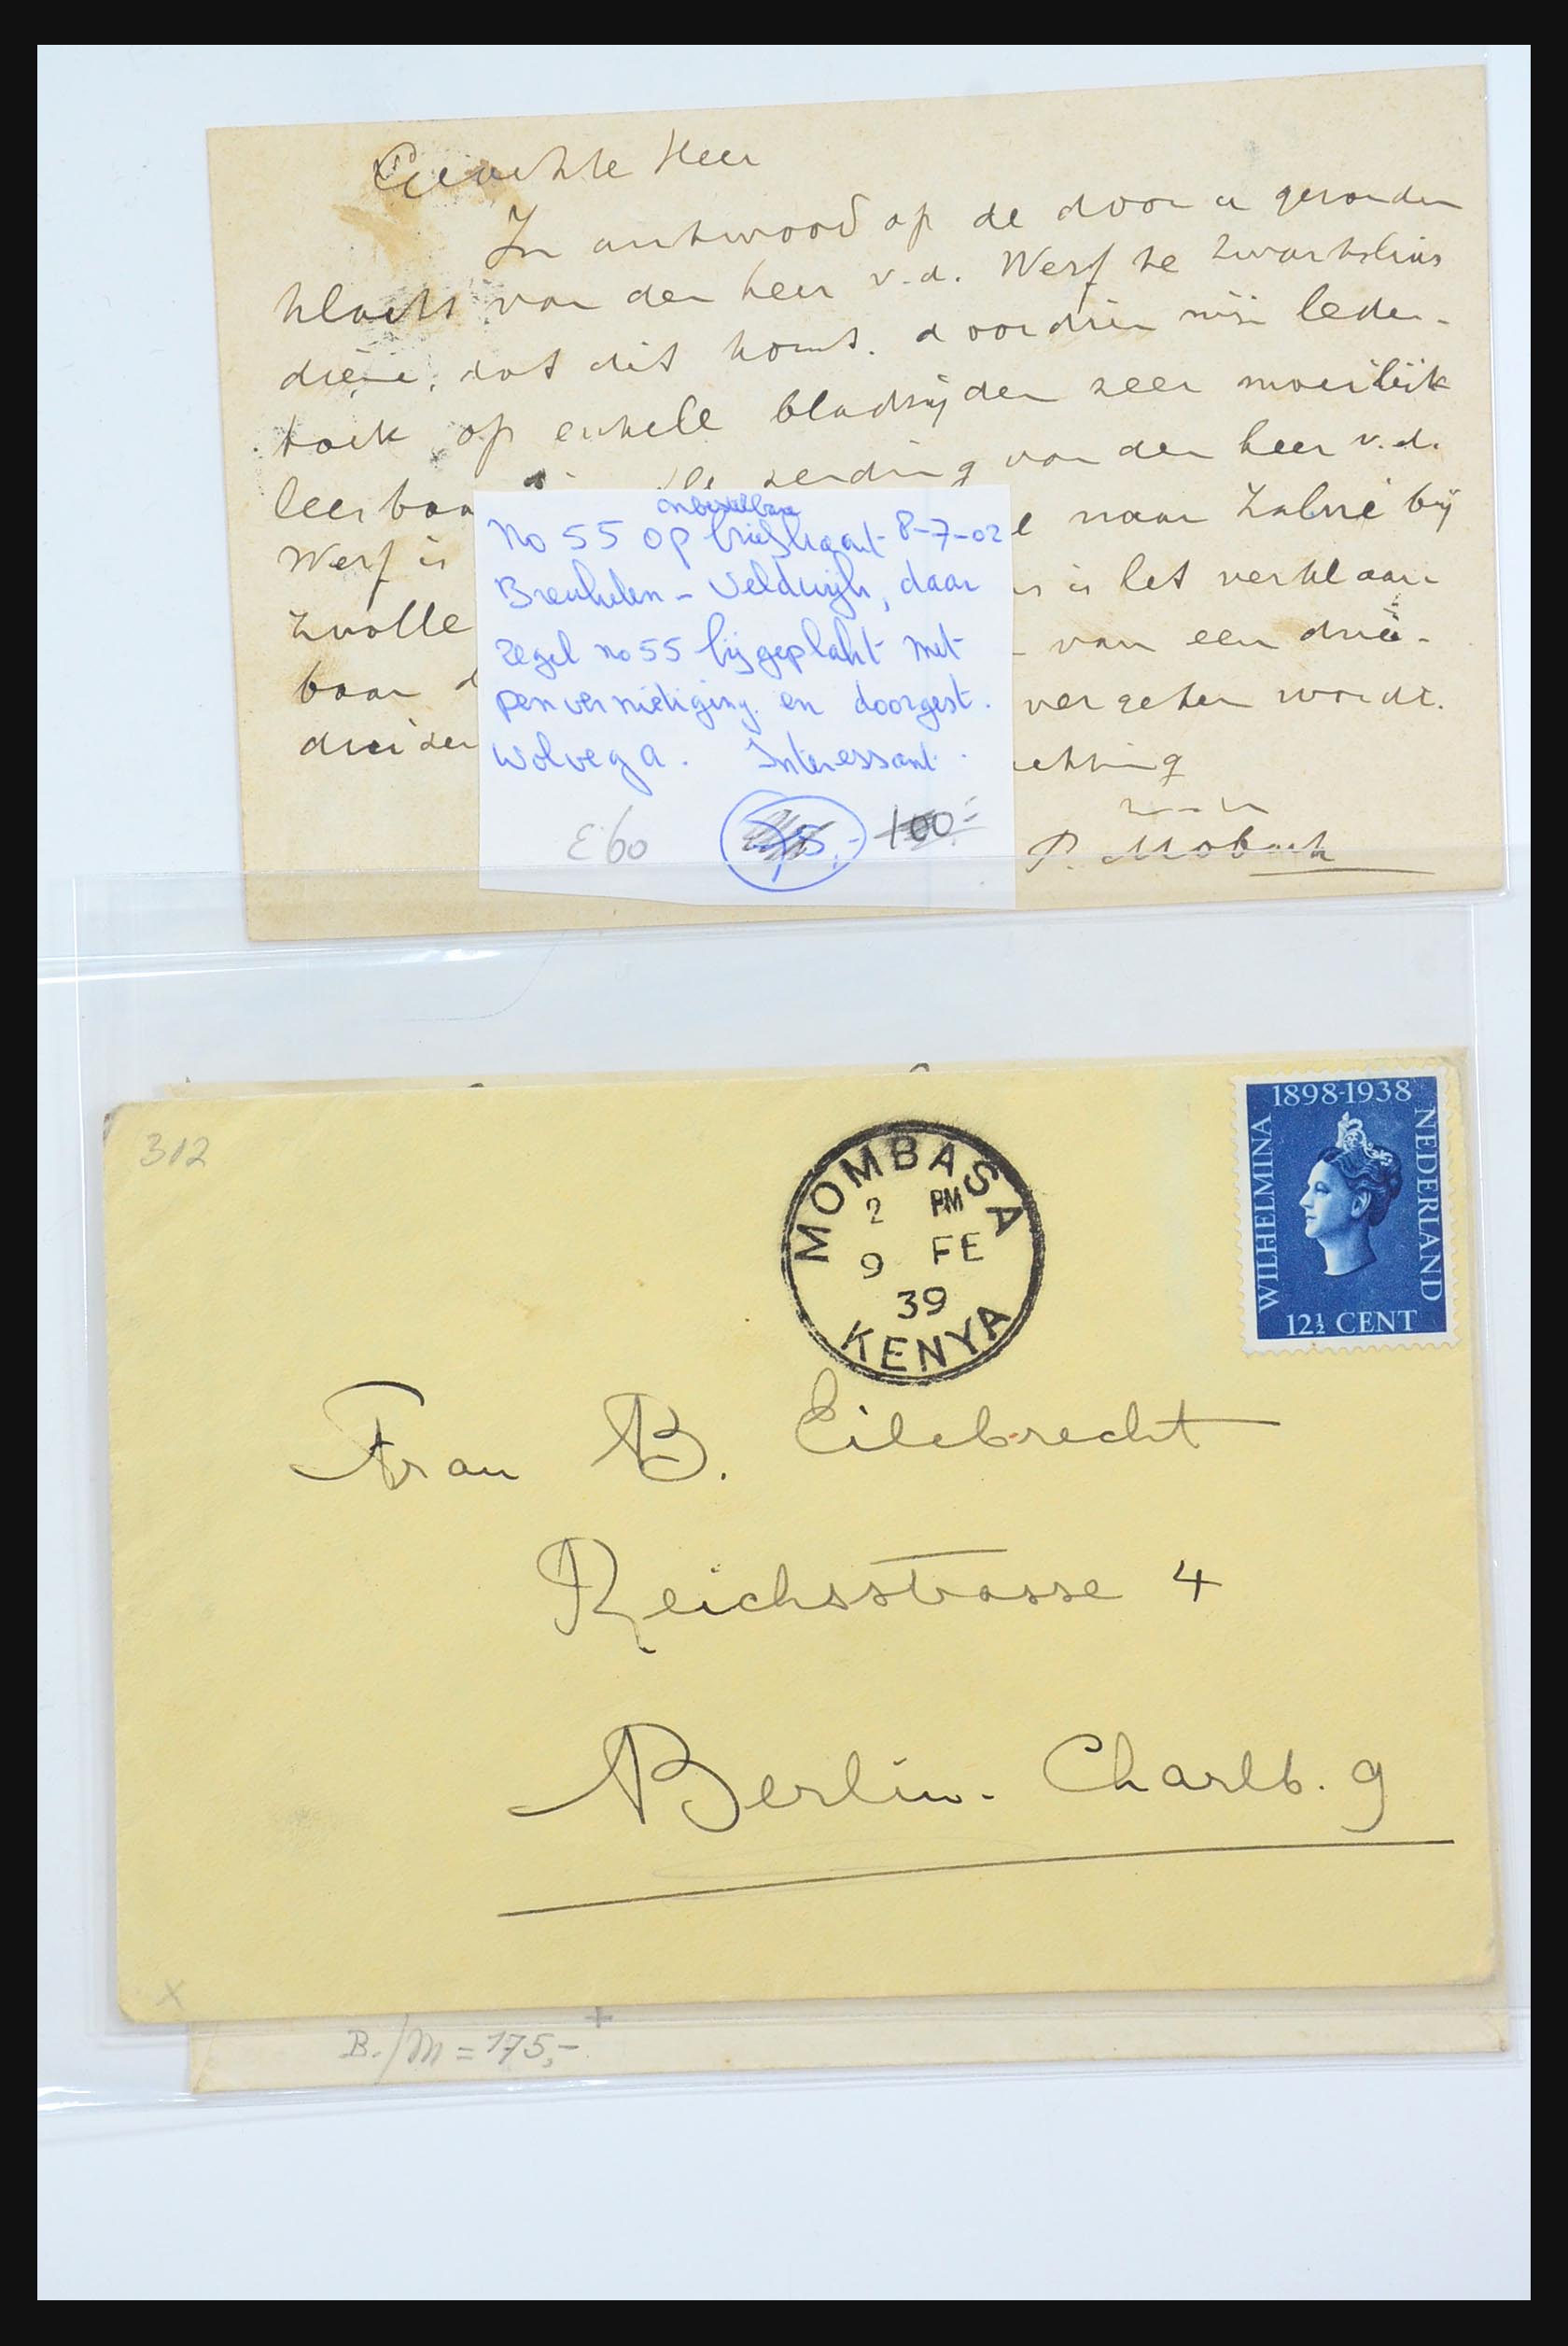 Geachte Heer
In antwoord op de door u gezonden
klacht van den heer v.d. Werf te Zwartsluis
diene, dat dit komt, doordien mijn leder-
op enkele bladzijden zeer moeilijk
leesbaa zending van den heer v.d.
Werf is naar Zalné bij
Zwolle is is het verklaar-
baar d van een drie-
vergeten wordt.
achting
P. Mobach
onbestelbare
No 55 op briefkaart 8-7-02
Breukelen - Veldwijk, daar
zegel no 55 bijgeplakt met
penvernietiging en doorgest.
Wolvega. Interessant.
£60 75,- 100,-
312
MOMBASA
2 PM
9 FE
39
KENYA
1898-1938
WILHELMINA
NEDERLAND
12½ CENT
Frau B. Eilebrecht
Reichsstrasse 4
Berlin. Charlb. 9
x
B./M = 175,- +